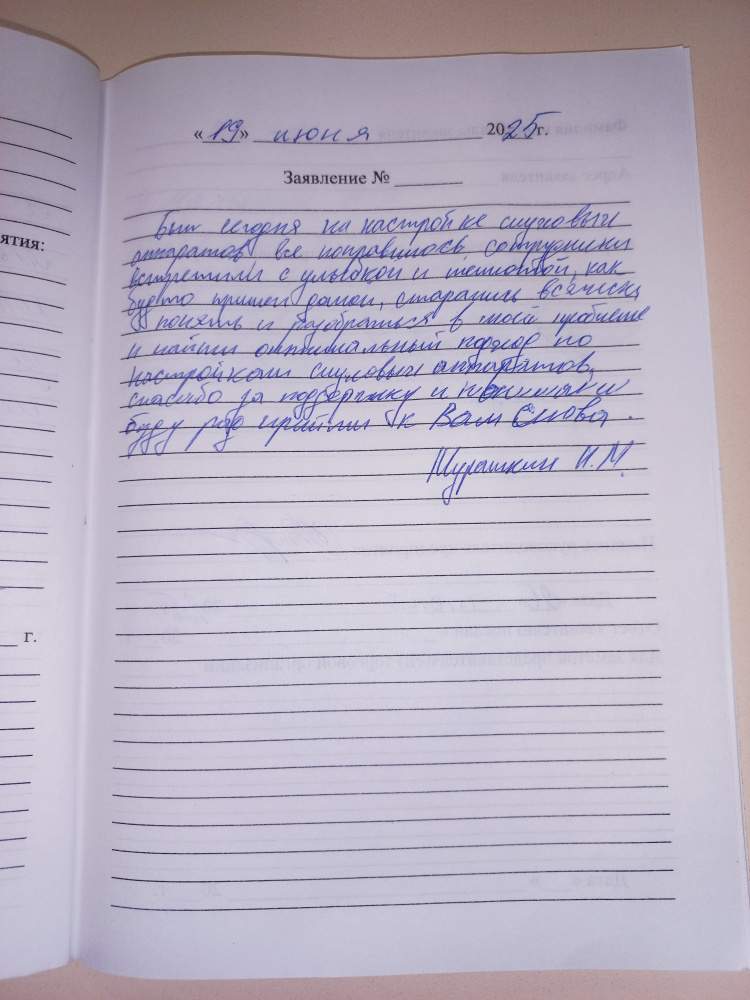 ятия:
г.
«19» июня 2025 г.
Заявление №
Был сегодня на настройке слуховых
аппаратов все понравилось сотрудники
встретили с улыбкой и теплотой, как
будто пришел домой, старались всячески
понять и разобраться в моей проблеме
и найти оптимальный подход по
настройкам слуховых аппаратов,
спасибо за поддержку и понимание
буду рад прийти к Вам снова.
Мурашкин И.М.